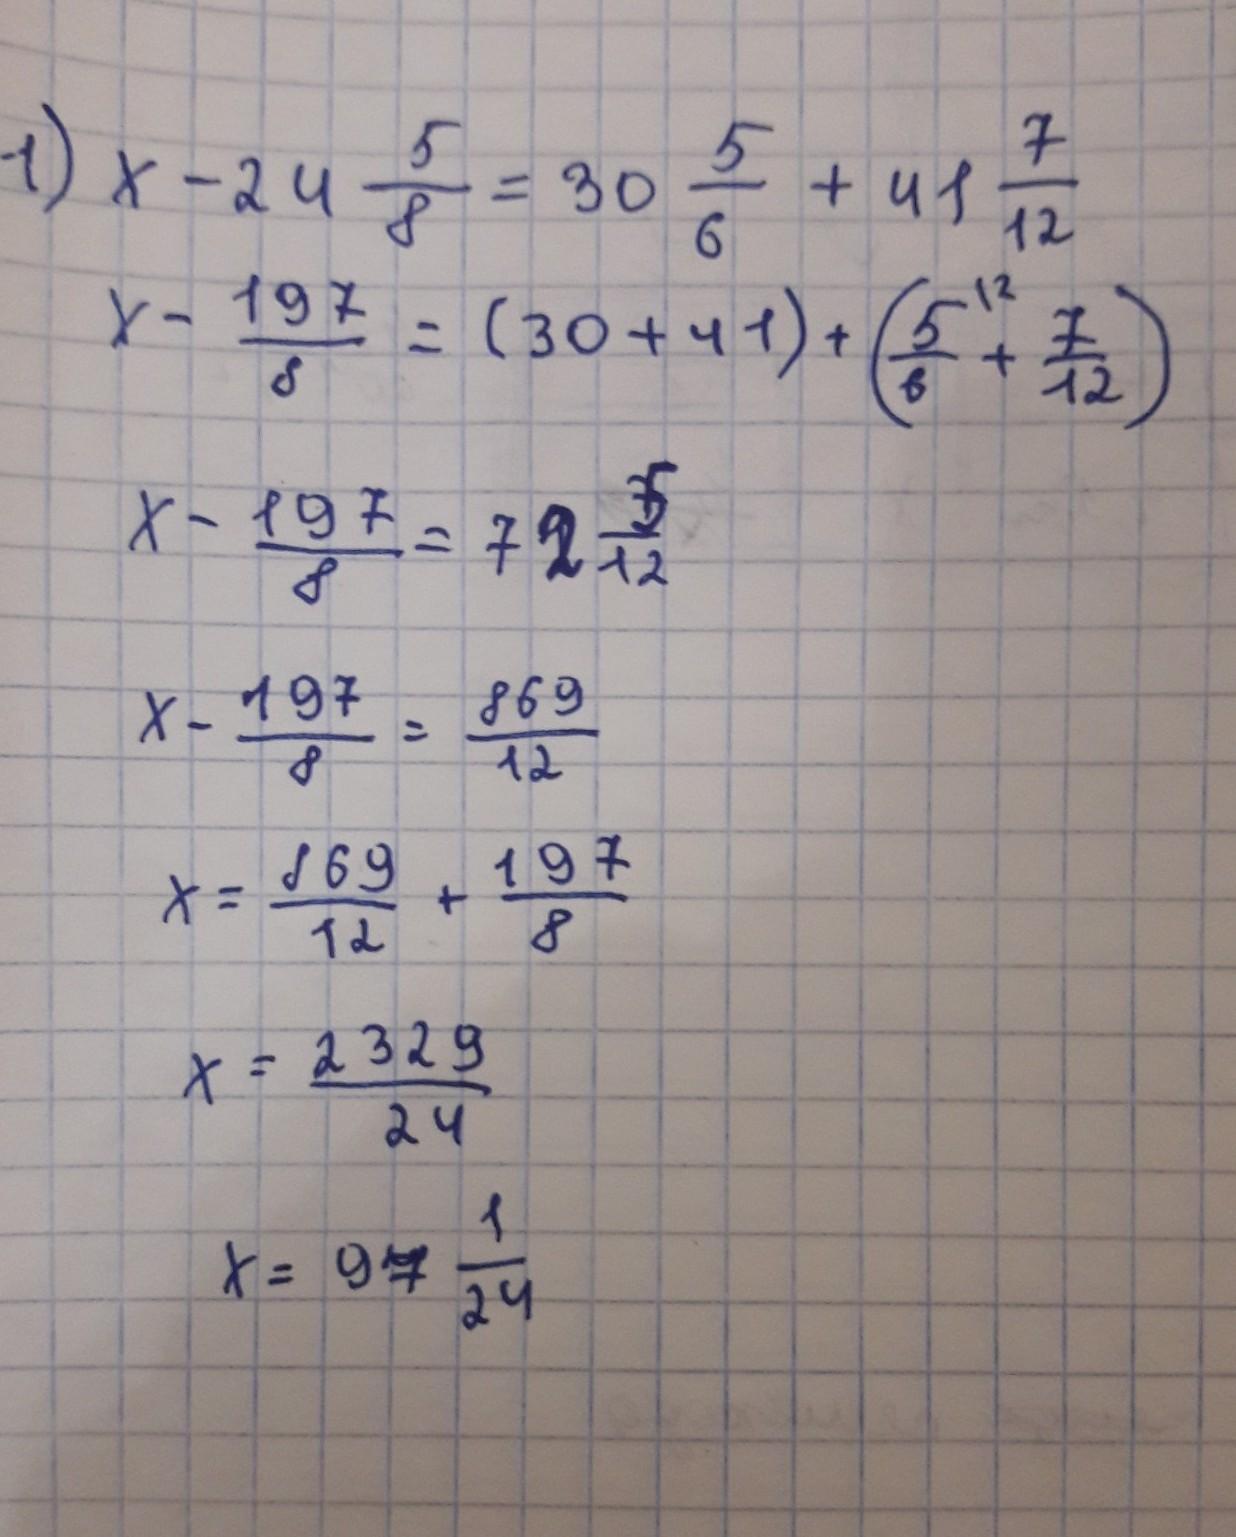 1) x - 24 5/8 = 30 5/6 + 41 7/12
x - 197/8 = (30 + 41) + (5/6 ¹² + 7/12)
x - 197/8 = 72 5/12
x - 197/8 = 869/12
x = 869/12 + 197/8
x = 2329/24
x = 97 1/24